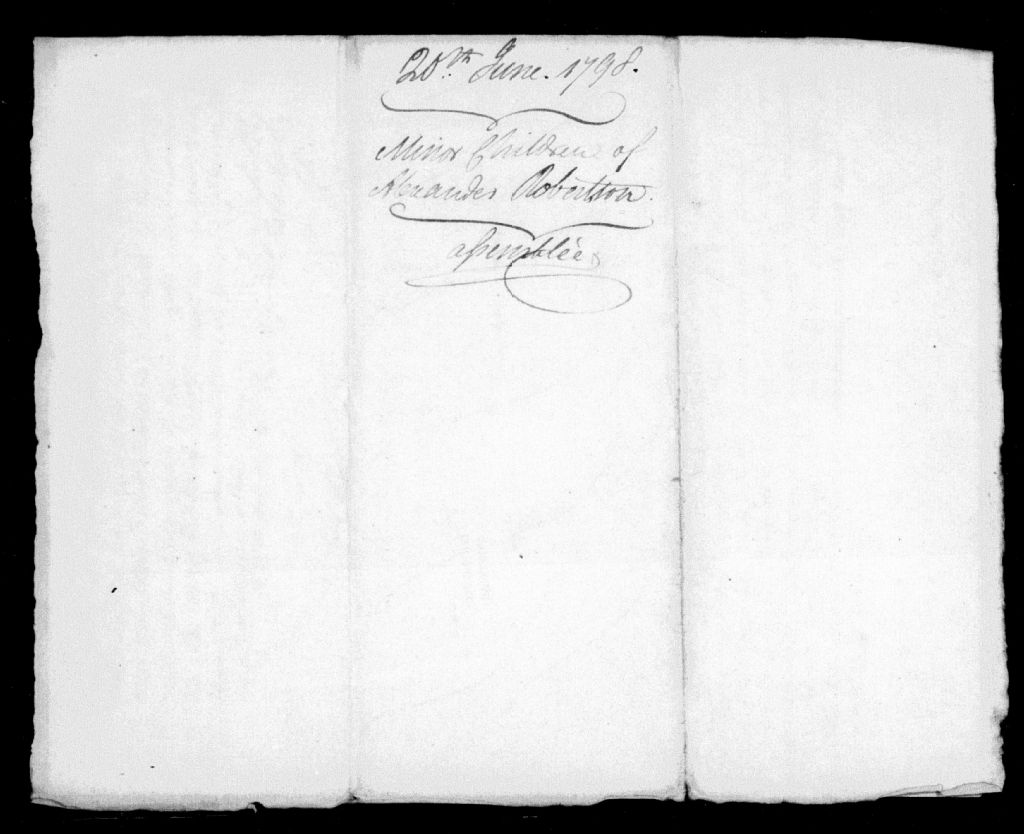 20th June. 1798.
Minor Children of
Alexander Robertson.
assemblée